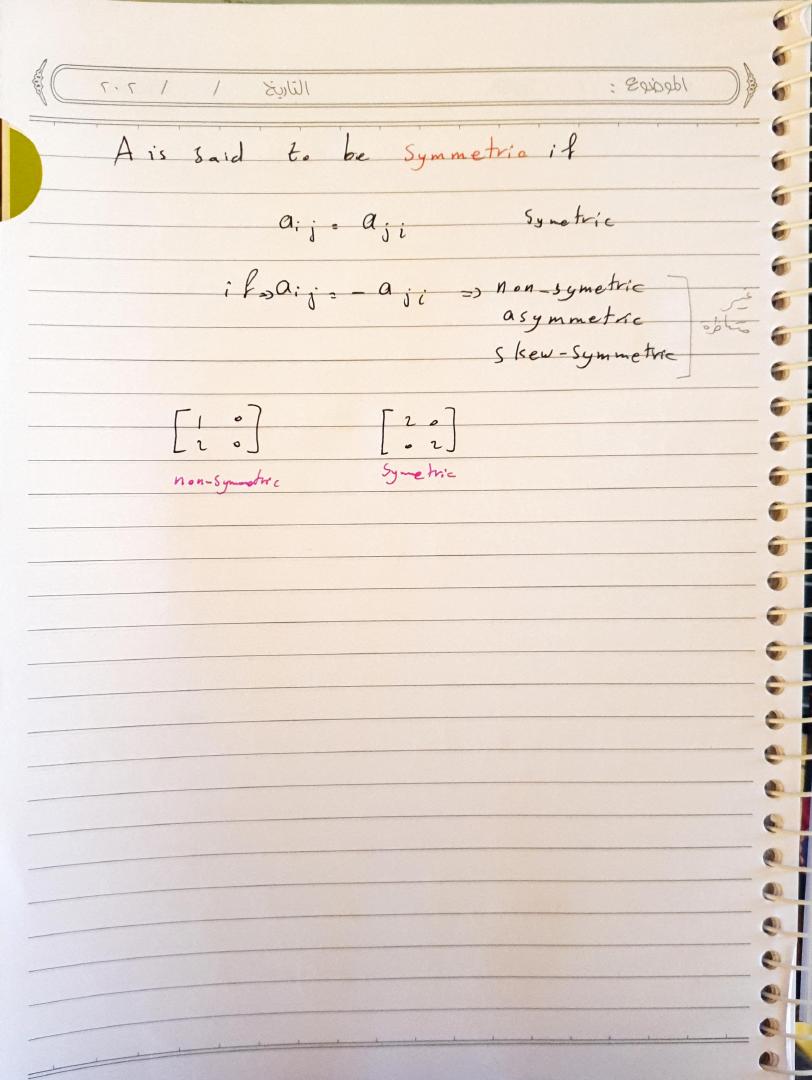 الموضوع : التاريخ / / ٢٠٢
A is said to be symmetric if
aij = aji symetric
if ⇒ aij = - aji ⇒ non-symetric
asymmetric
غير
متناظره
skew-symmetric
[ 1 0 ] [ 2 0 ]
[ 2 0 ] [ 0 2 ]
non-symmetric symetric